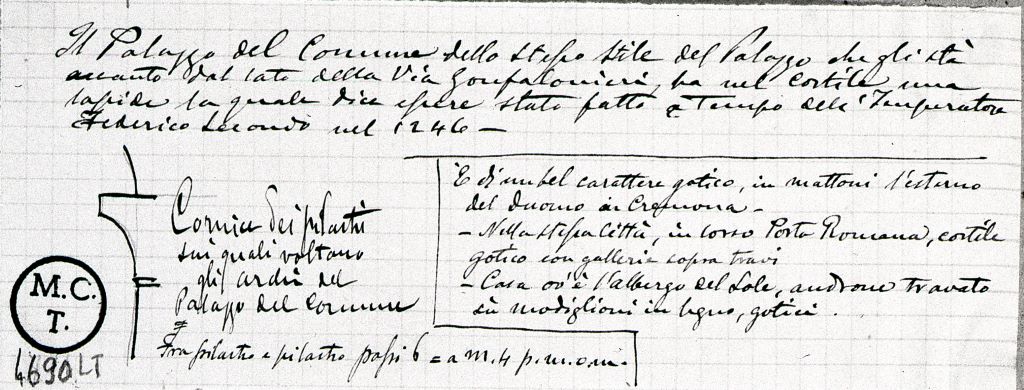 Il Palazzo del Comune dello stesso stile del Palazzo che gli stà
avanti dal lato della Via Gonfalonieri, ha nel Cortile una
lapide la quale dice essere stato fatto a Tempo dell'Imperatore
Federico Secondo nel 1246 –
Cornice dei pilastri
sui quali voltano
gli archi del
Palazzo del Comune
Fra pilastro e pilastro passi 6 = a m. 4 p.m.o.m.
È di un bel carattere gotico, in mattoni l'esterno
del Duomo in Cremona –
– Nella stessa Città, in corso Porta Romana, cortile
gotico con galleria sopra travi
– Casa ov'è l'albergo del Sole, androne travato
su modiglioni in legno, gotici.
M.C.
T.
4690 LT